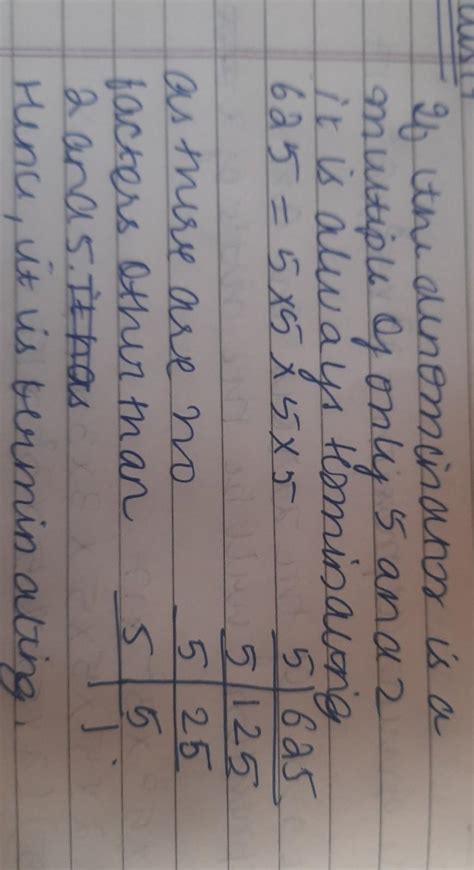 If the denominator is a
multiple of only 5 and 2
it is always terminating
625 = 5×5×5×5
5 | 625
5 | 125
5 | 25
5 | 5
1
as there are no
factors other than
2 and 5. It has
Hence, it is terminating.